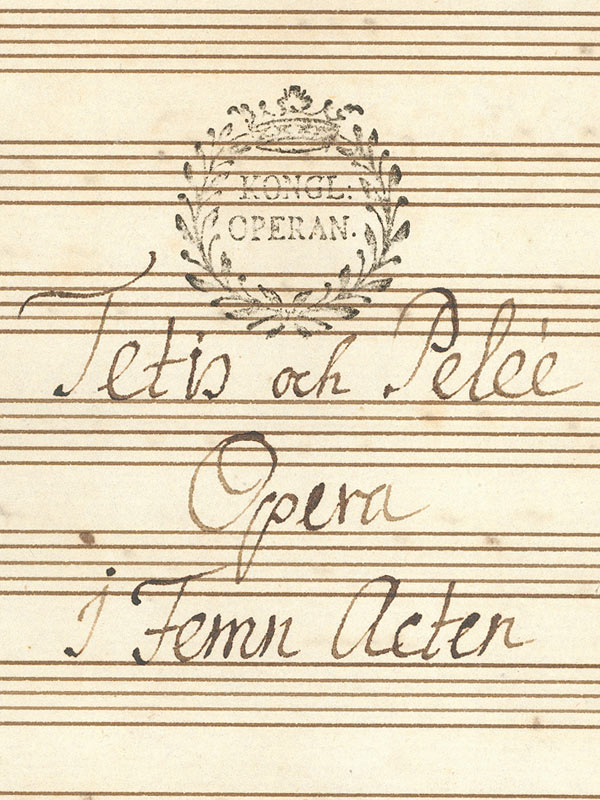 KONGL:
OPERAN.
Tetis och Pelée
Opera
j Femn Acter